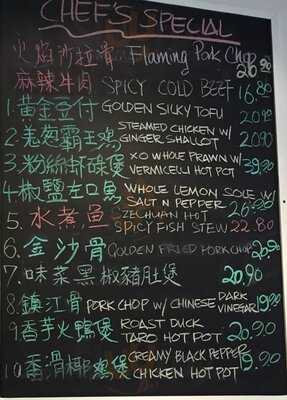 CHEF'S SPECIAL
火焰沙拉骨 Flaming Pork Chop 26.80
麻辣牛肉 SPICY COLD BEEF 16.80
1.黄金豆付 GOLDEN SILKY TOFU 20.90
2.葱霸王鸡 STEAMED CHICKEN W/ GINGER SHALLOT 20.90
3.粉丝虾碌煲 XO WHOLE PRAWN W/ VERMICELLI HOT POT
4.椒鹽左口魚 WHOLE LEMON SOLE W/ SALT N PEPPER
5.水煮鱼 SZECHUAN HOT SPICY FISH STEW 22.80
6.金沙骨 GOLDEN FRIED PORK CHOP
7.味菜黑椒豬肚煲 20.90
8.鎮江骨 PORK CHOP W/ CHINESE DARK VINEGAR 19.90
9.香芋火鴨煲 ROAST DUCK TARO HOT POT 20.90
10.香滑椰鸡煲 CREAMY BLACK PEPPER CHICKEN HOT POT 19.90